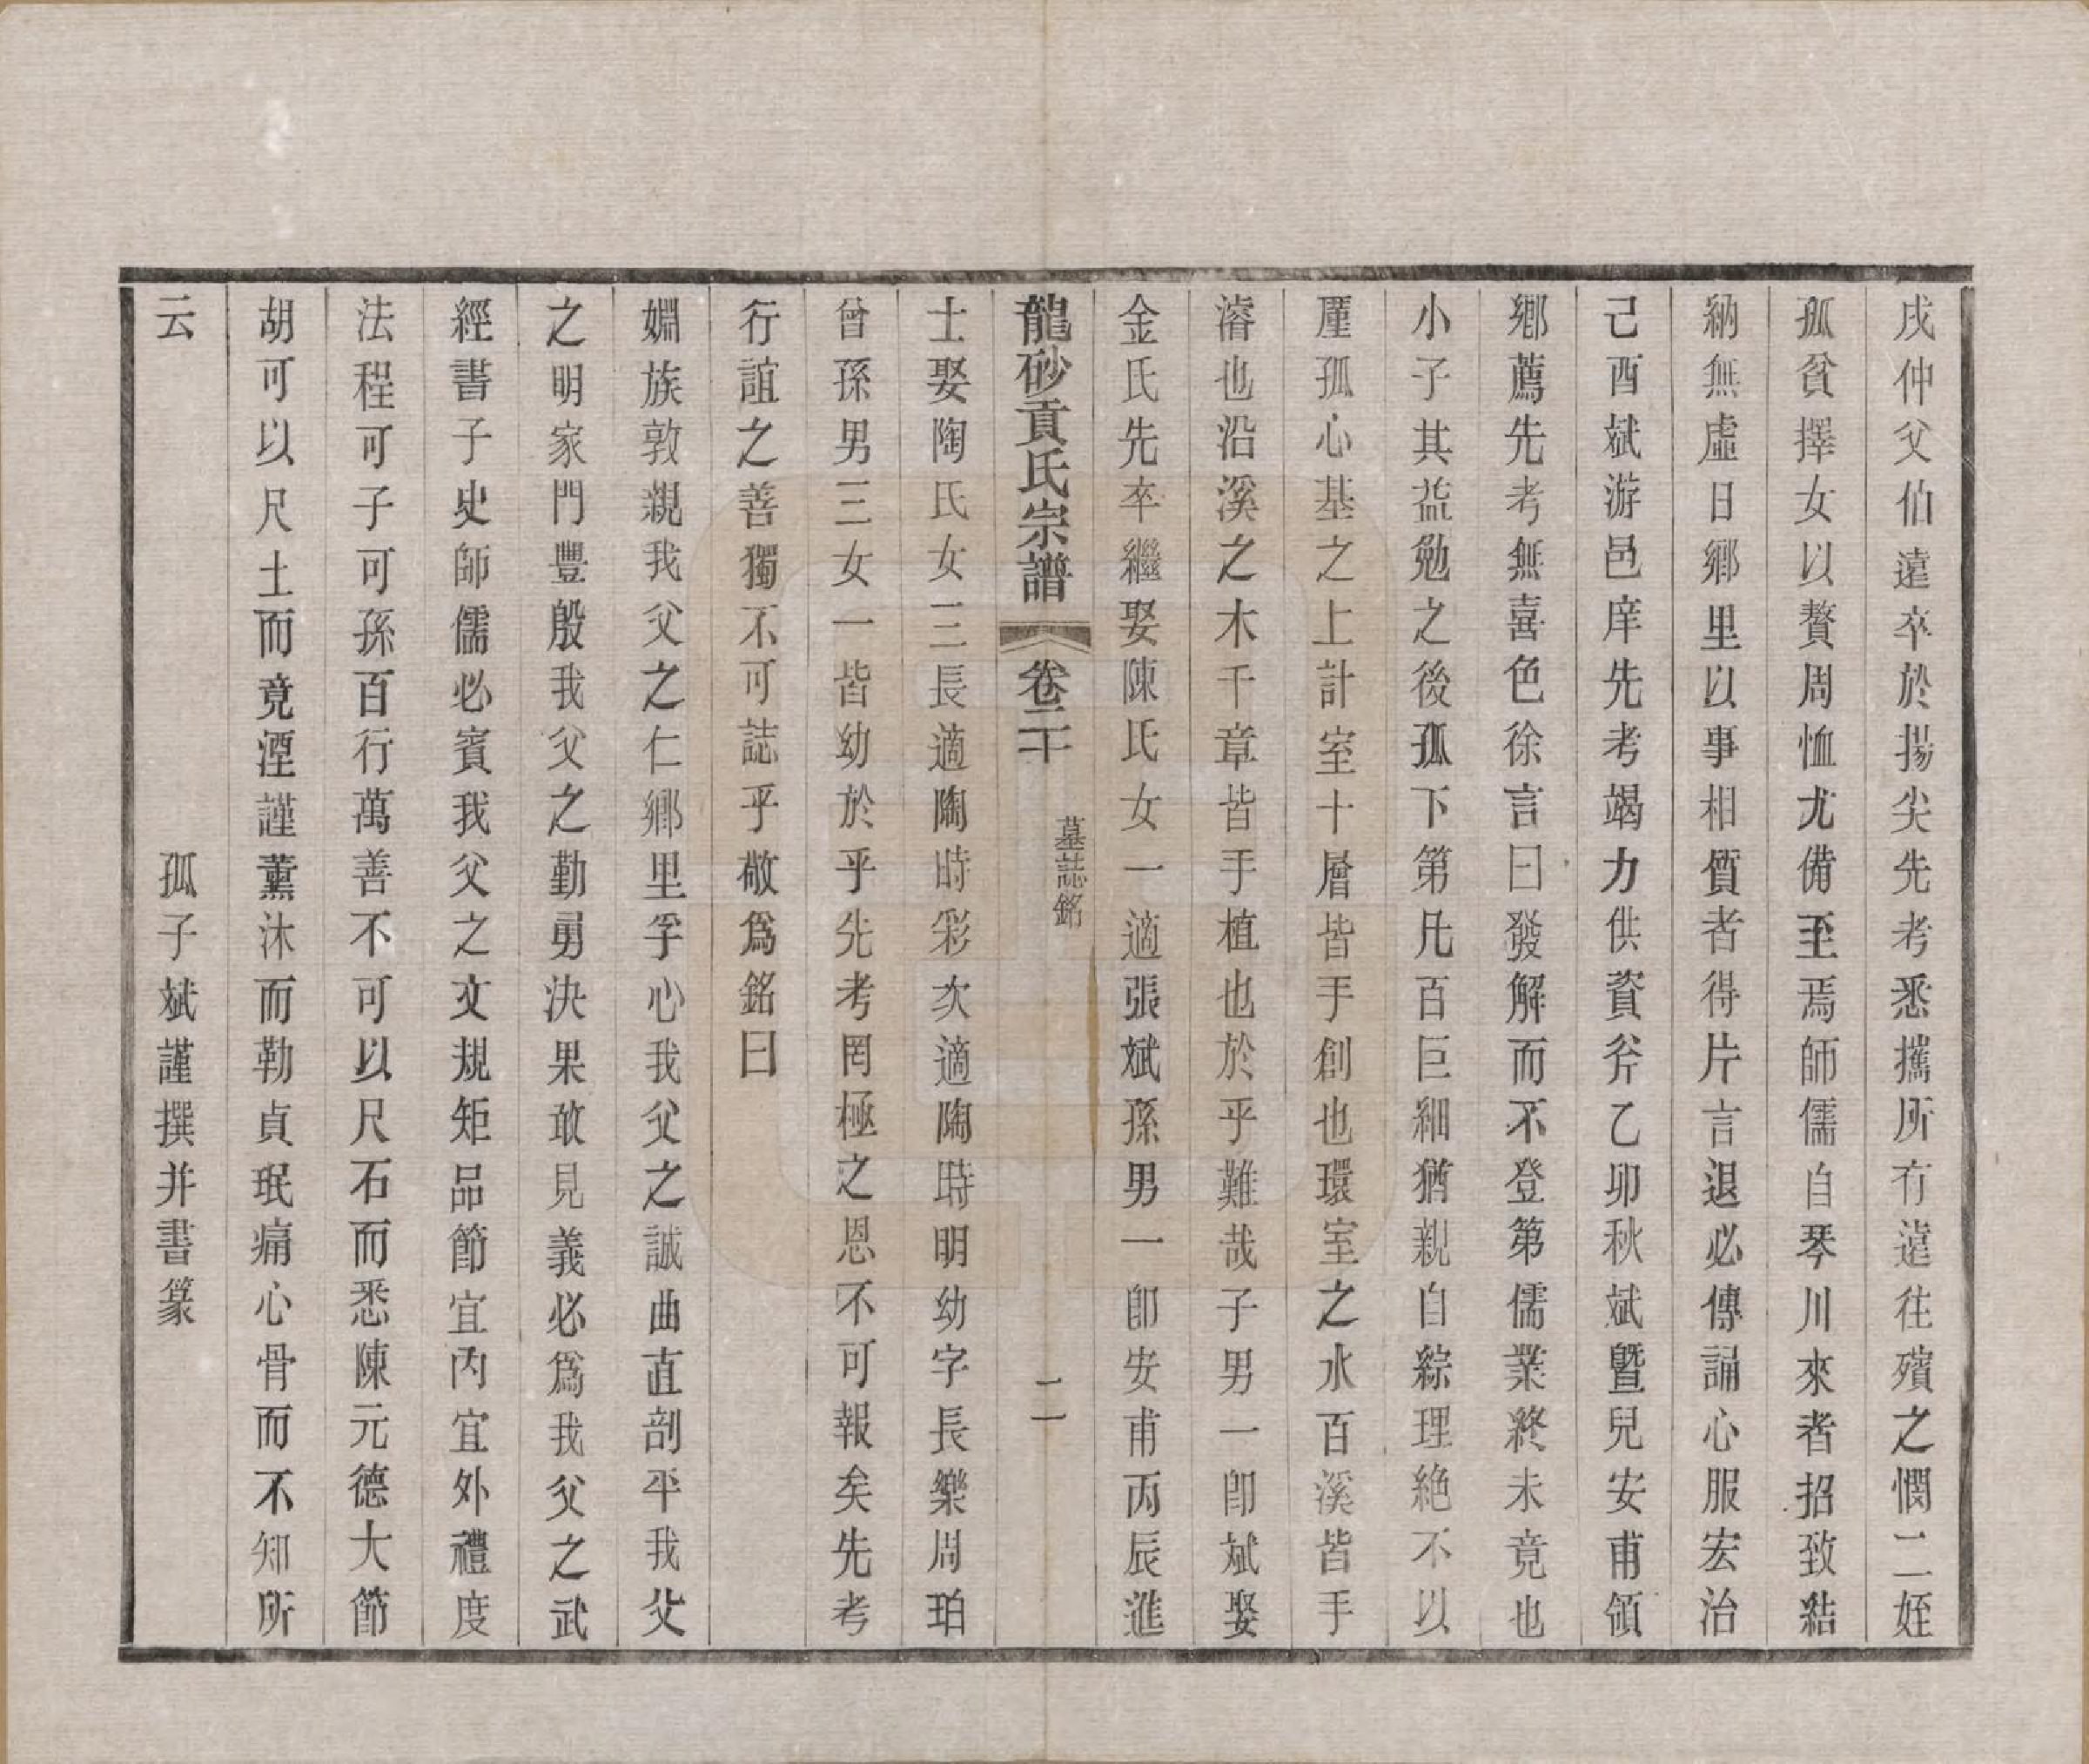 戌仲父伯遠卒於揚尖先考悉攜所有遠往殯之憫二姪
孤貧擇女以贅周恤尤備至焉師儒自琴川來者招致結
納無虛日鄉里以事相質者得片言退必傳誦心服宏治
己酉斌游邑庠先考竭力供資斧乙卯秋斌曁兒安甫領
鄉薦先考無喜色徐言曰發解而不登第儒業終未竟也
小子其益勉之後孤下第凡百巨細猶親自綜理絶不以
㕓孤心基之上計室十層皆手創也環室之水百溪皆手
濬也沿溪之木千章皆手植也於乎難哉子男一卽斌娶
金氏先卒繼娶陳氏女一適張斌孫男一卽安甫丙辰進
龍砂貢氏宗譜 卷二十 墓誌銘 二一
士娶陶氏女三長適陶時彩次適陶時明幼字長樂周珀
曾孫男三女一皆幼於乎先考罔極之恩不可報矣先考
行誼之善獨不可誌乎敬爲銘曰
婣族敦親我父之仁鄉里孚心我父之誠曲直剖平我父
之明家門豐殷我父之勤勇決果敢見義必爲我父之武
經書子史師儒必賓我父之文規矩品節宜內宜外禮度
法程可子可孫百行萬善不可以尺石而悉陳元德大節
胡可以尺土而竟湮謹薰沐而勒貞珉痛心骨而不知所
云 孤子斌謹撰并書篆